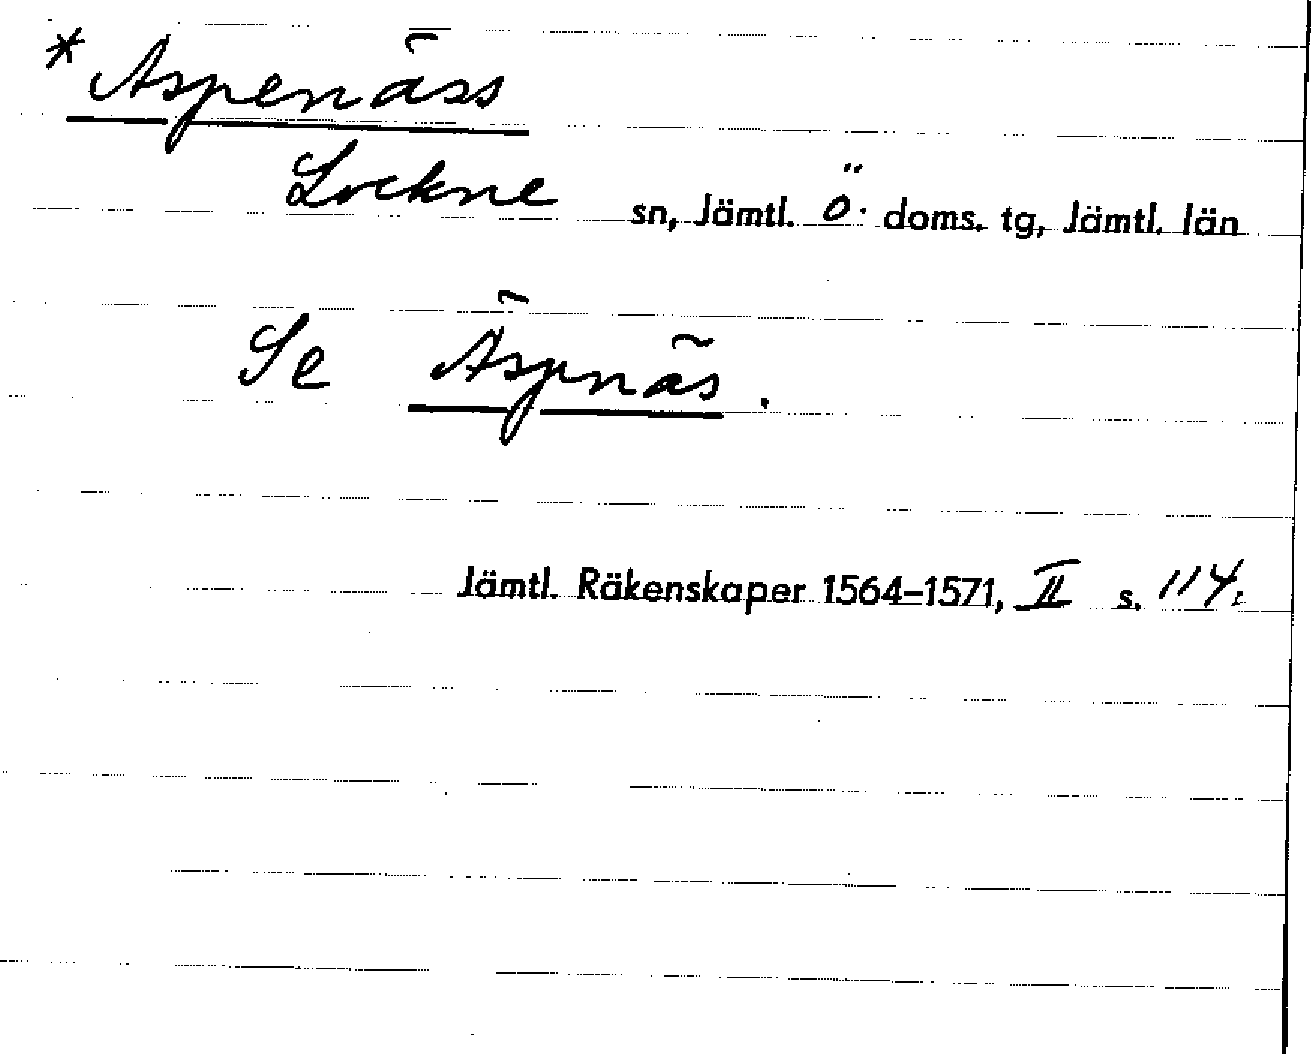 * Aspenäss
Lockne sn, Jämtl. Ö. doms. tg, Jämtl. län
Se Äspnäs.
Jämtl. Räkenskaper 1564–1571, II s. 114.